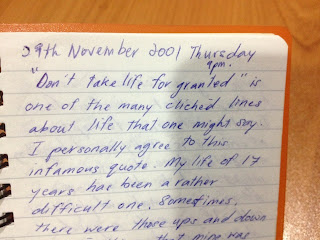 29th November 2001 Thursday
9pm.
"Don't take life for granted" is
one of the many cliched lines
about life that one might say.
I personally agree to this
infamous quote. My life of 17
years has been a rather
difficult one. Sometimes,
there were those ups and down
that mine was